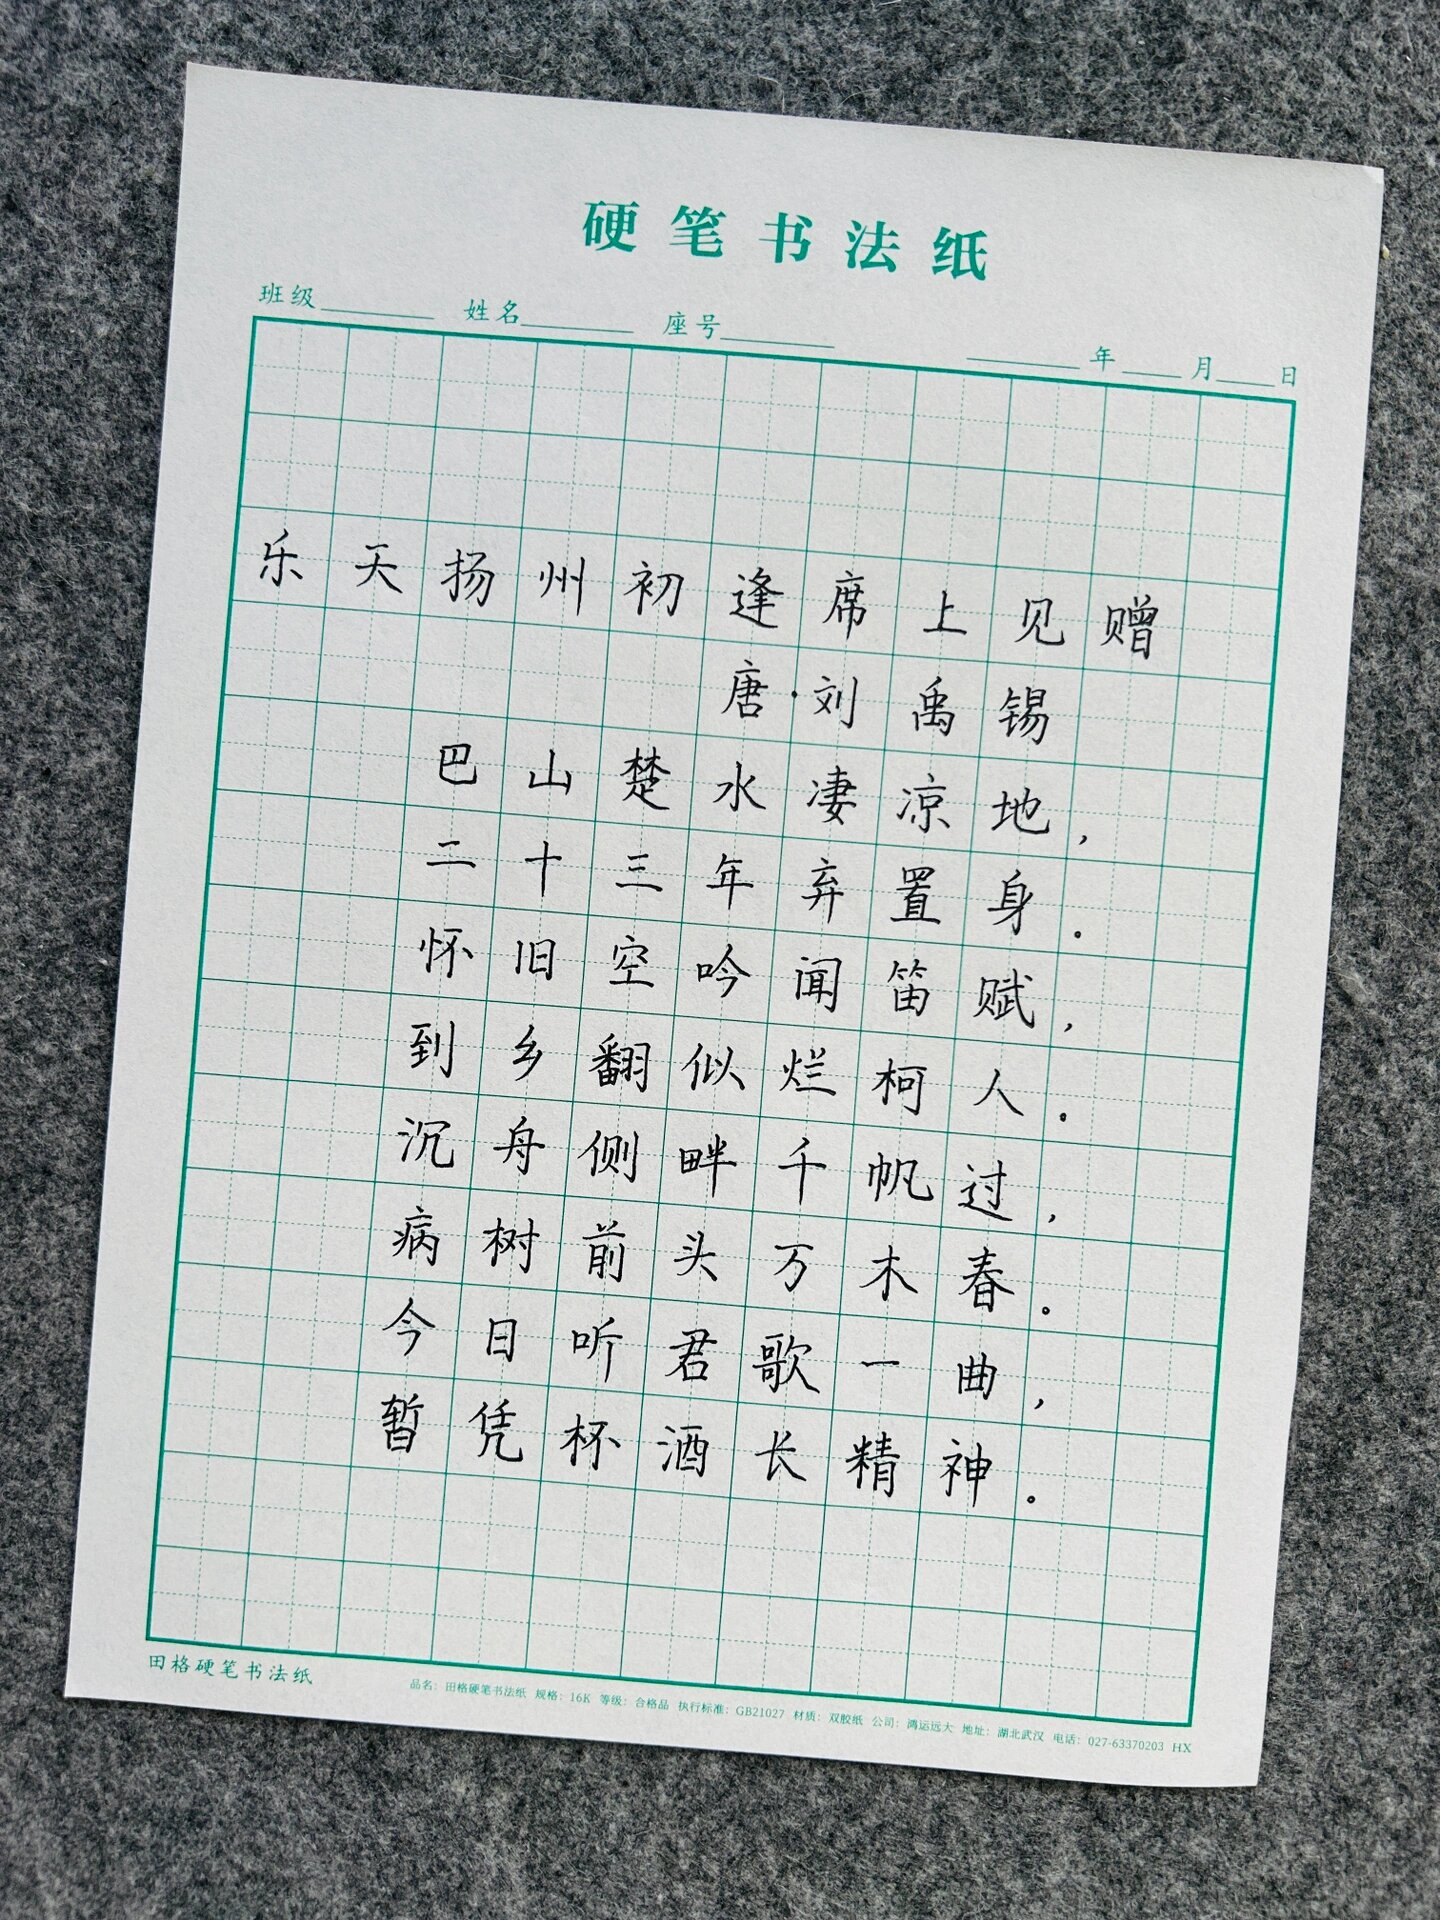 硬笔书法纸
班级 姓名 座号 年 月 日
乐天扬州初逢席上见赠
唐·刘禹锡
巴山楚水凄凉地，
二十三年弃置身。
怀旧空吟闻笛赋，
到乡翻似烂柯人。
沉舟侧畔千帆过，
病树前头万木春。
今日听君歌一曲，
暂凭杯酒长精神。
田格硬笔书法纸
品名：田格硬笔书法纸 规格：16K 等级：合格品 执行标准：GB21027 材质：双胶纸 公司：鸿运远大 地址：湖北武汉 电话：027-63370203 HX